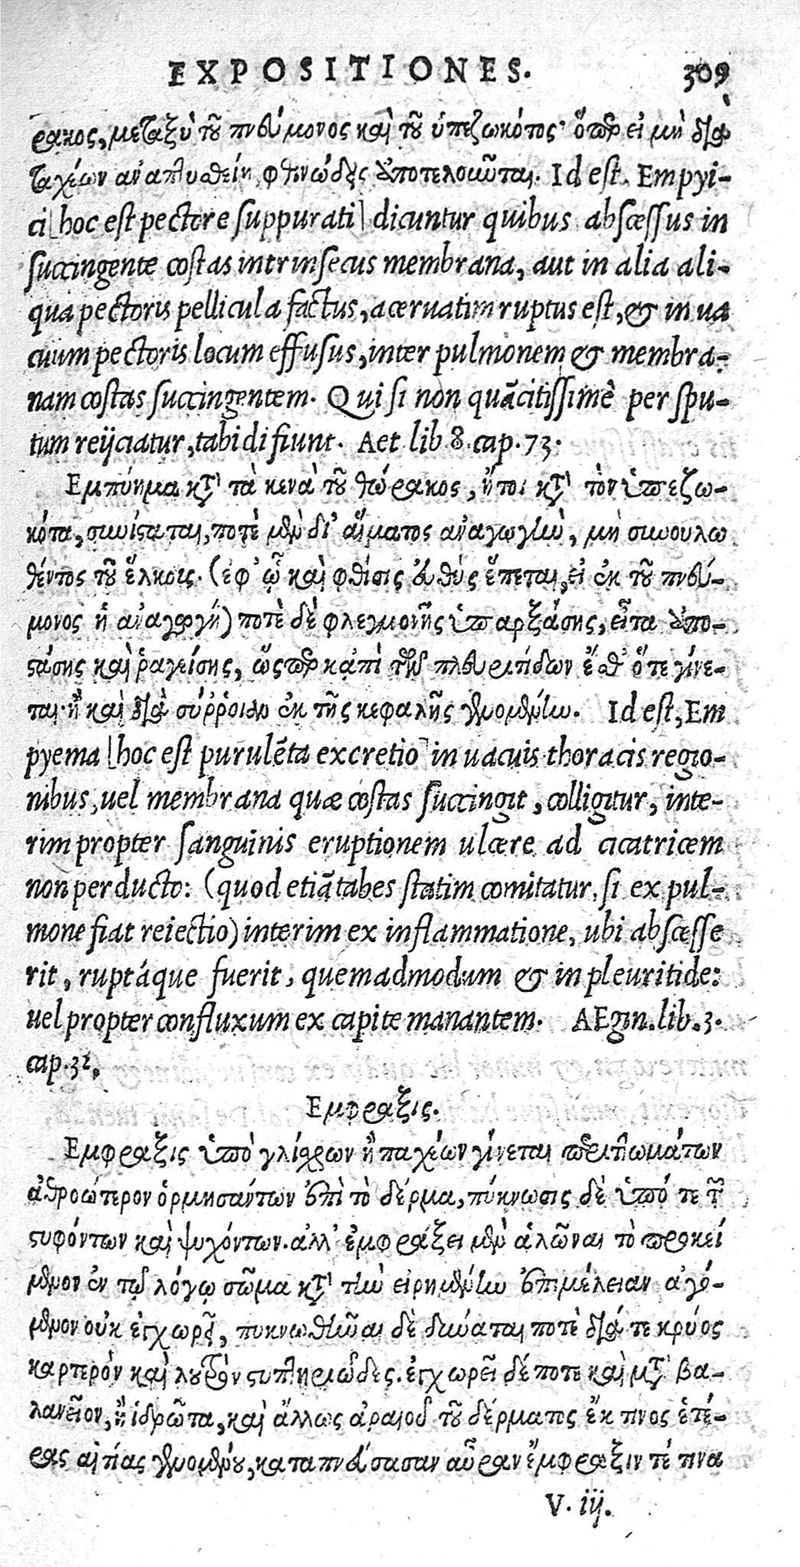 EXPOSITIONES. 309
ρακος, μεταξὺ τοῦ πνεύμονος καὶ τοῦ ὑπεζωκότος· ὅπερ εἰ μὴ διὰ
ταχέων ἀναπτυσθείη, φθινώδεις ἀποτελοῦνται. Id est. Empyi-
ci [hoc est pectore suppurati] dicuntur quibus abscessus in
succingente costas intrinsecus membrana, aut in alia ali-
qua pectoris pellicula factus, aceruatim ruptus est, & in ua
cuum pectoris locum effusus, inter pulmonem & membra-
nam costas succingentem. Qui si non quàcitissimè per spu-
tum reijciatur, tabidi fiunt. Aet lib 8. cap. 73.
Εμπύημα κατὰ τὰ κενὰ τοῦ θώρακος, ἤτοι κατὰ τὸν ὑπεζω-
κότα, συνίσταται, ποτὲ μὲν δι' αἵματος ἀναγωγὴν, μὴ συνουλω
θέντος τοῦ ἕλκους. (ἐφ' ᾧ καὶ φθίσις εὐθὺς ἕπεται, εἰ ἐκ τοῦ πνεύ-
μονος ἡ ἀναγωγή) ποτὲ δὲ φλεγμονῆς ὑπαρξάσης, εἶτα ἀπο-
στάσης καὶ ῥαγείσης, ὥσπερ κἀπὶ τῶν πλευριτίδων ἔσθ' ὅτε γίνε-
ται· ἢ καὶ διὰ σύῤῥοιαν ἐκ τῆς κεφαλῆς γενομένην. Id est, Em
pyema [hoc est purulēta excretio] in uacuis thoracis regio-
nibus, uel membrana quæ costas succingit, colligitur, inte-
rim propter sanguinis eruptionem ulcere ad cicatricem
non perducto: (quod etiā tabes statim comitatur, si ex pul-
mone fiat reiectio) interim ex inflammatione, ubi abscesse
rit, ruptáque fuerit, quemadmodum & in pleuritide:
uel propter confluxum ex capite manantem. AEgin. lib. 3.
cap. 32.
Εμφραξις.
Εμφραξις ὑπὸ γλίχρων ἢ παχέων γίνεται περιττωμάτων
ἀθροώτερον ὁρμησάντων ἐπὶ τὸ δέρμα, πύκνωσις δὲ ὑπό τε τῶν
στυφόντων καὶ ψυχόντων. ἀλλ' ἐμφράξει μὲν ἁλῶναι τὸ προκεί
μενον ἐν τῷ λόγῳ σῶμα κατὰ τὴν εἰρημένην ἐπιμέλειαν ἀγό-
μενον οὐκ ἐγχωρεῖ, πυκνωθῆναι δὲ δύναται ποτὲ διά τε κρύος
καρτερὸν καὶ λουτρὸν στυπτηριῶδες. ἐγχωρεῖ δέ ποτε καὶ μετὰ βα-
λανεῖον, ἢ ἱδρῶτα, καὶ ἄλλως ἀραιοῦ τοῦ δέρματος ἔκ τινος ἑτέ-
ρας αἰτίας γενομένου, καταπνεύσασαν αὖραν ἔμφραξιν τέ τινα
V. iij.